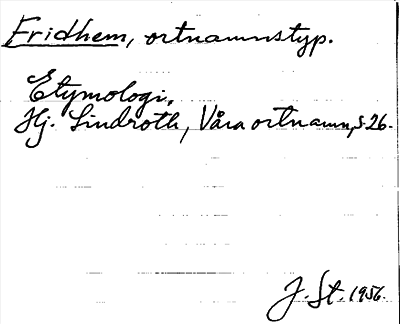 Fridhem, ortnamnstyp.
Etymologi.
Hj. Lindroth, Våra ortnamn, s. 26.
J. St. 1956.